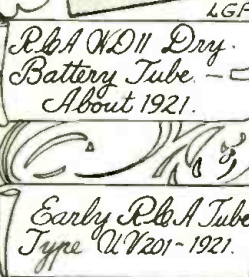 LGF
RCA WD11 Dry
Battery Tube.
About 1921.
Early RCA Tube
Type UV201-1921.